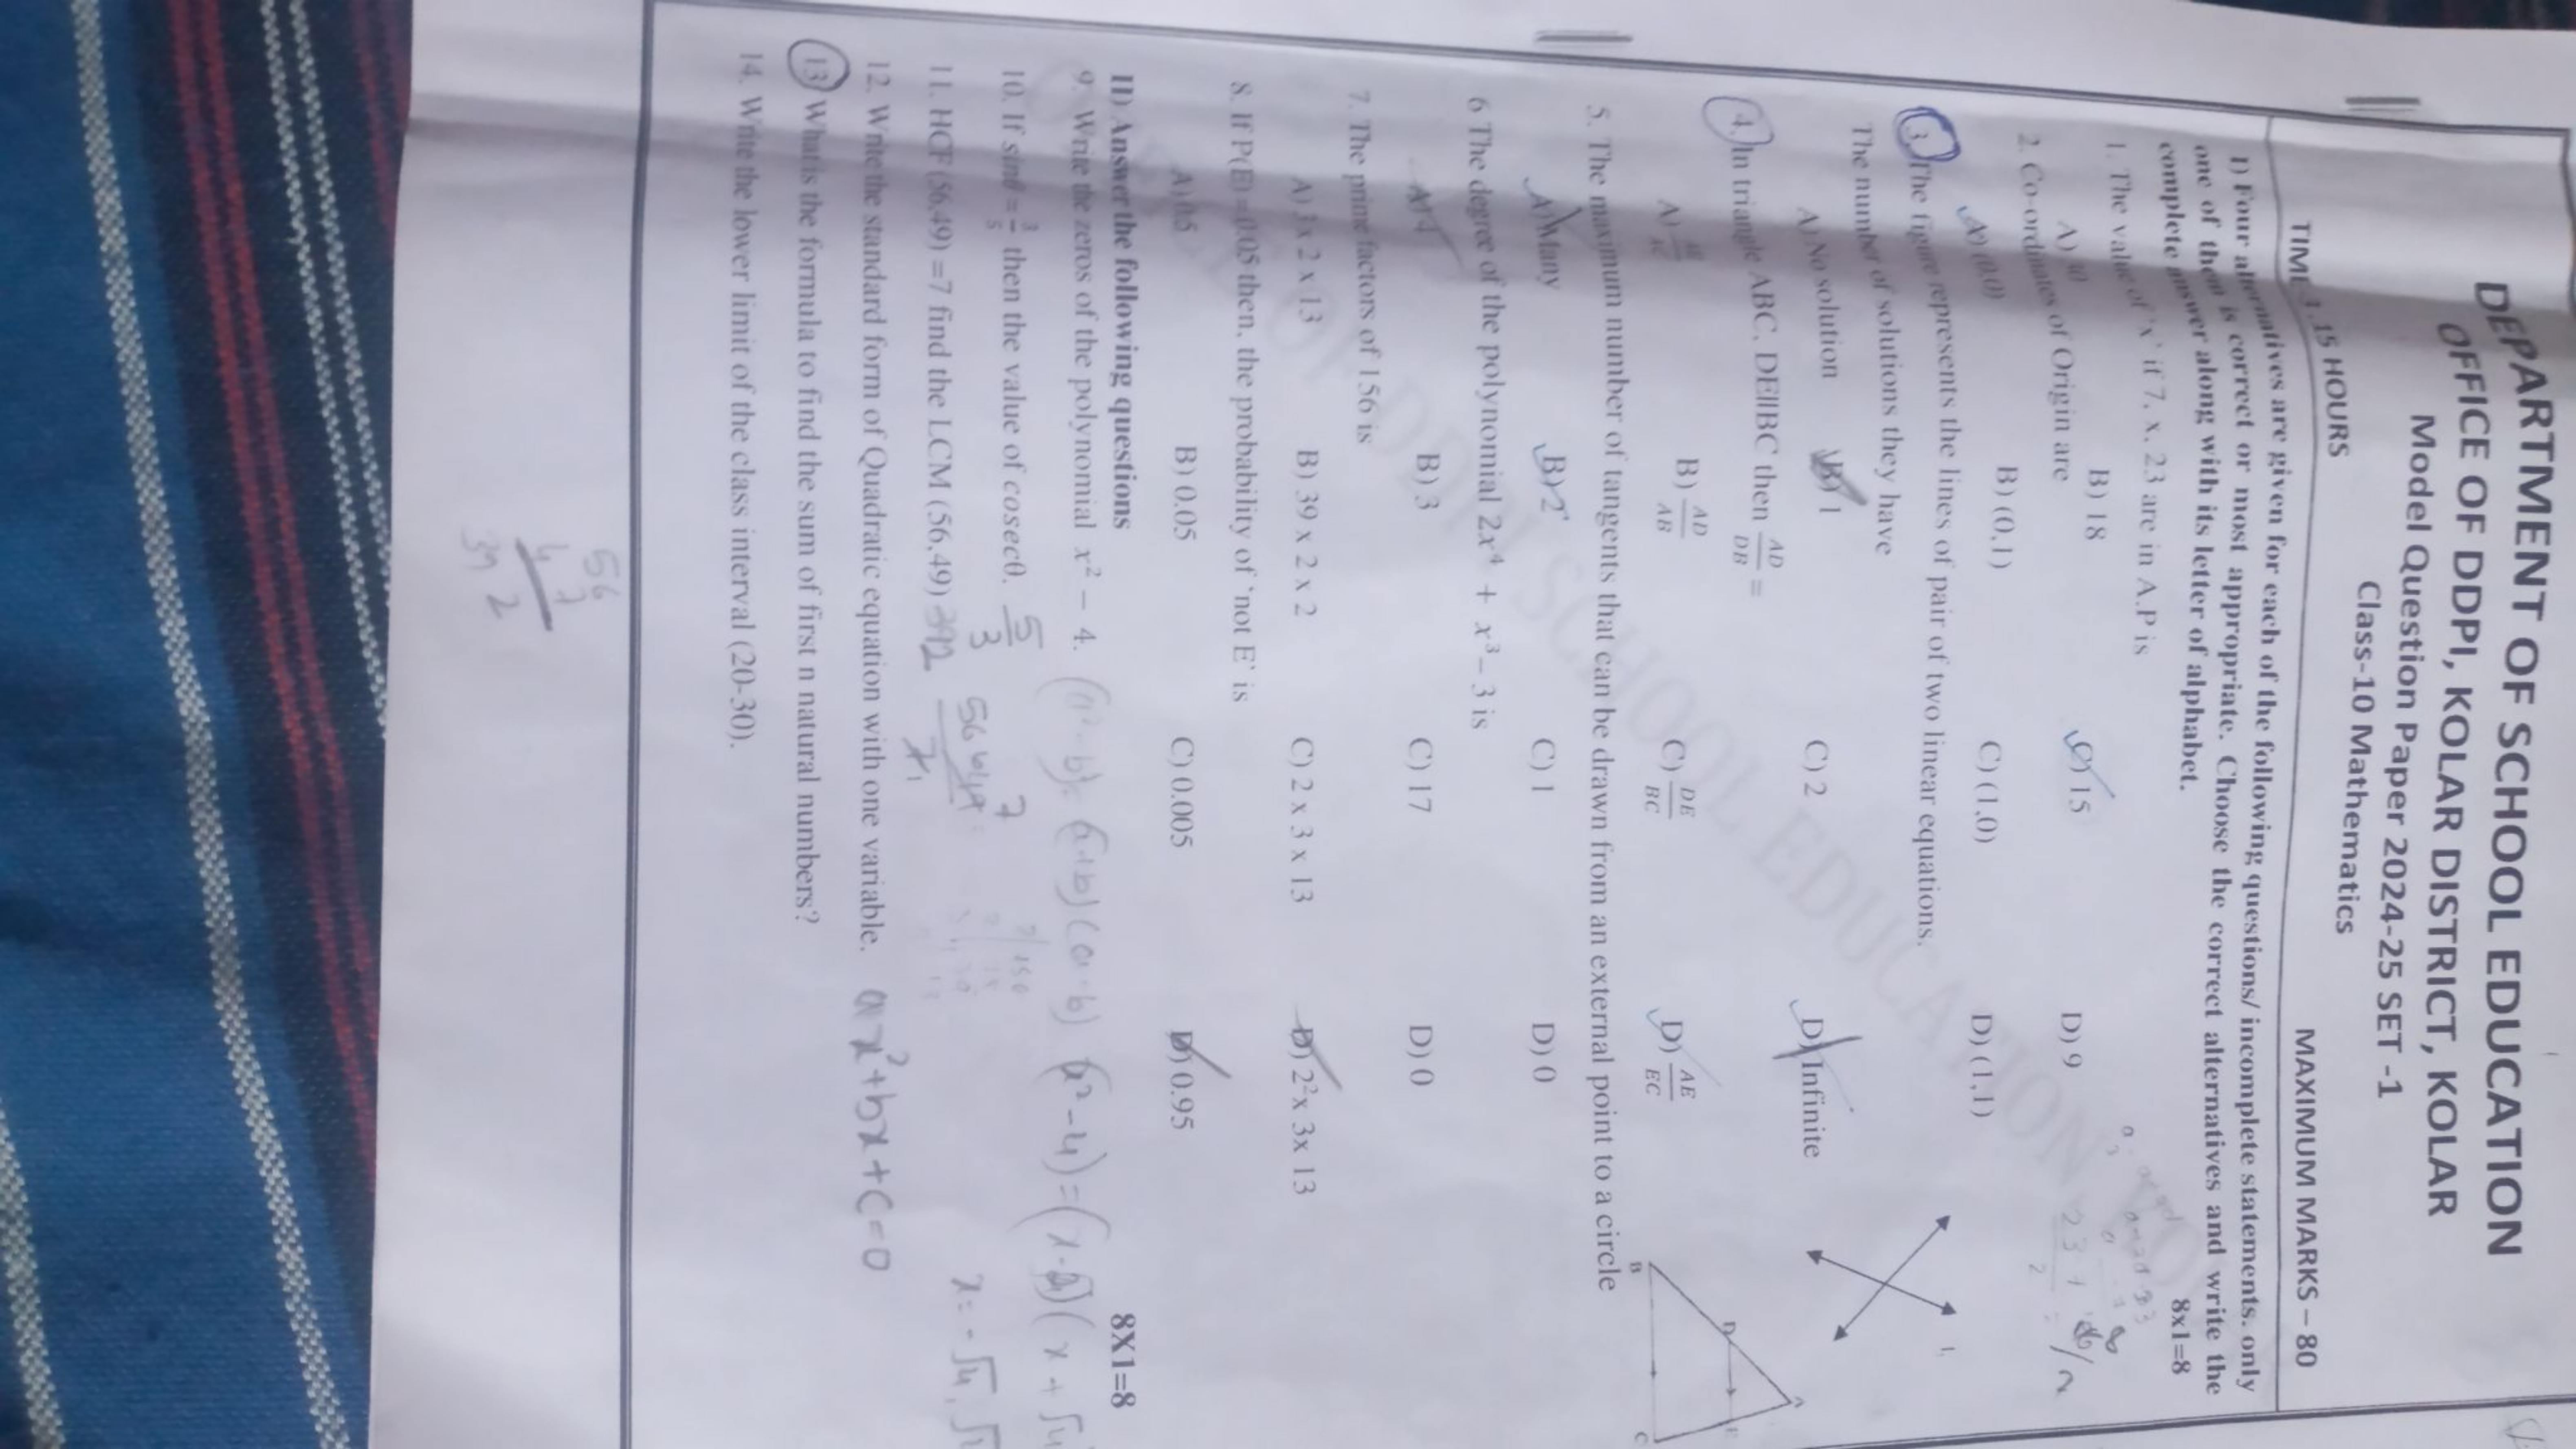 DEPARTMENT OF SCHOOL EDUCATION
OFFICE OF DDPI, KOLAR DISTRICT, KOLAR
Model Question Paper 2024-25 SET -1
Class-10 Mathematics
TIME 3.15 HOURS MAXIMUM MARKS – 80
I) Four alternatives are given for each of the following questions/ incomplete statements. only
one of them is correct or most appropriate. Choose the correct alternatives and write the
complete answer along with its letter of alphabet. 8x1=8
1. The value of 'x' if 7, x, 23 are in A.P is
A) B) 18 C) 15 D) 9
2. Co-ordinates of Origin are
A) (0,0) B) (0,1) C) (1,0) D) (1,1)
3. The figure represents the lines of pair of two linear equations.
The number of solutions they have
A) No solution B) 1 C) 2 D) Infinite
4. In triangle ABC, DE||BC then AD/DB =
A) B) AD/AB C) DE/BC D) AE/EC
A
B
C
D
5. The maximum number of tangents that can be drawn from an external point to a circle
A) Many B) 2 C) 1 D) 0
6 The degree of the polynomial 2x⁴ + x³ – 3 is
A) 4 B) 3 C) 17 D) 0
7. The prime factors of 156 is
A) 3 x 2 x 13 B) 39 x 2 x 2 C) 2 x 3 x 13 D) 2² x 3x 13
8. If P(E) = 0.05 then, the probability of 'not E' is
A) 0.5 B) 0.05 C) 0.005 D) 0.95
II) Answer the following questions 8X1=8
9. Write the zeros of the polynomial x² – 4.
10. If sinθ = 3/5 then the value of cosecθ. 5/3
11. HCF (56,49) =7 find the LCM (56,49) 392
12. Write the standard form of Quadratic equation with one variable. ax²+bx+c=0
13. What is the formula to find the sum of first n natural numbers?
14. Write the lower limit of the class interval (20-30).
56
7
39 2